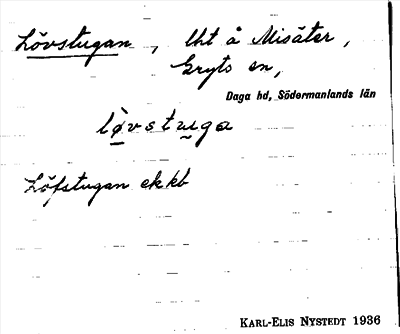 Lövstugan, Uht å Misäter,
Gryts sn,
Daga hd, Södermanlands län
lø̀vstuga
Löfstugan ekkb
KARL-ELIS NYSTEDT 1936